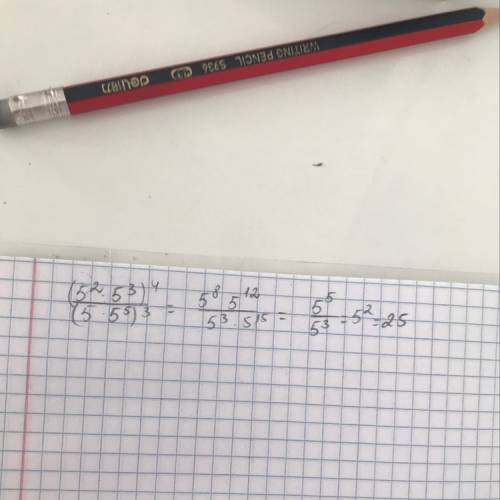 WRITING PENCIL S936 deli
(5²·5³)⁴/(5·5⁵)³ = 5⁸ 5¹²/5³·5¹⁵ = 5⁵/5³ = 5² = 25